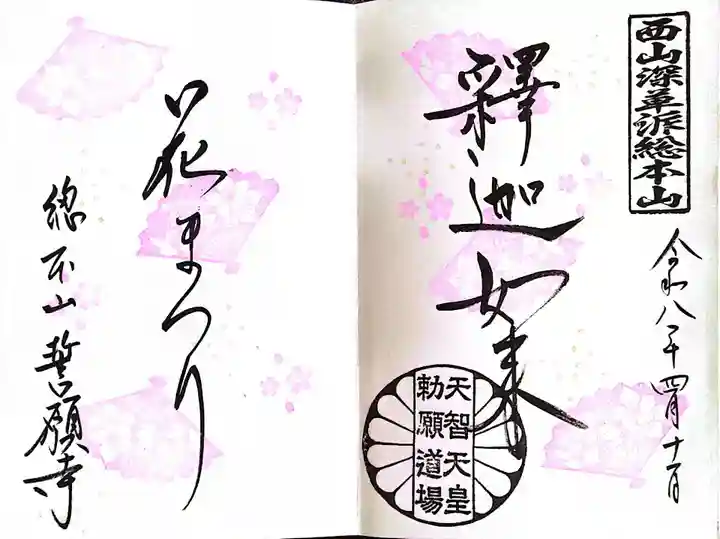 西山深草派総本山
令和八年四月十日
釋迦如来
天智天皇
勅願道場
花まつり
総本山 誓願寺